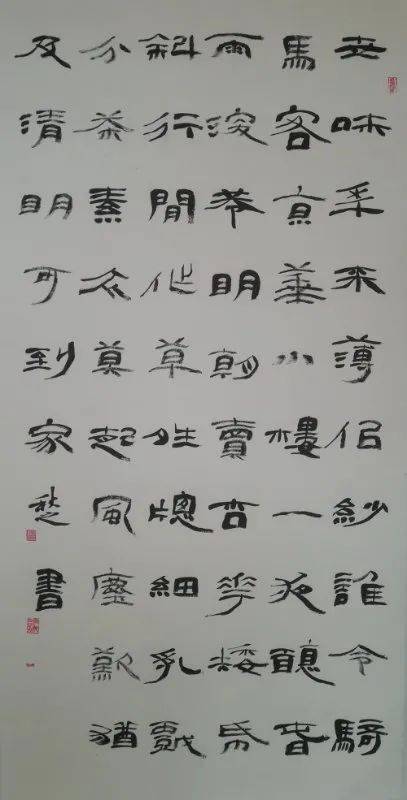 世味秊來薄佀紗誰令騎
馬客亰華小樓一夜聽春
雨深巷明朝賣杏花矮帋
斜行間作草夝牕細乳戲
分茶素衣莫起風塵歎猶
及清明可到家書